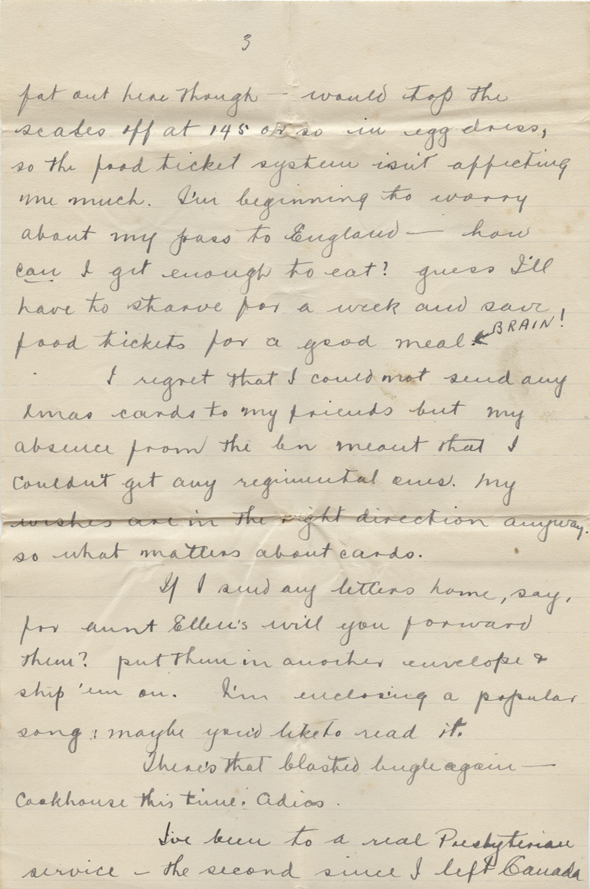 3
fat out here though — would top the
scales off at 145 or so in egg dress,
so the food ticket system isn't affecting
me much. I'm beginning to worry
about my pass to England — how
can I get enough to eat? guess I'll
have to starve for a week and save
food tickets for a good meal. BRAIN!
I regret that I could not send any
Xmas cards to my friends but my
absence from the bn meant that I
couldn't get any regimental ones. My
wishes are in the right direction anyway.
so what matters about cards.
If I send any letters home, say,
for aunt Ellen's will you forward
them? put them in another envelope &
ship 'em on. I'm enclosing a popular
song; maybe you'd like to read it.
There's that blasted bugle again —
cookhouse this time. Adios.
I've been to a real Presbyterian
service — the second since I left Canada